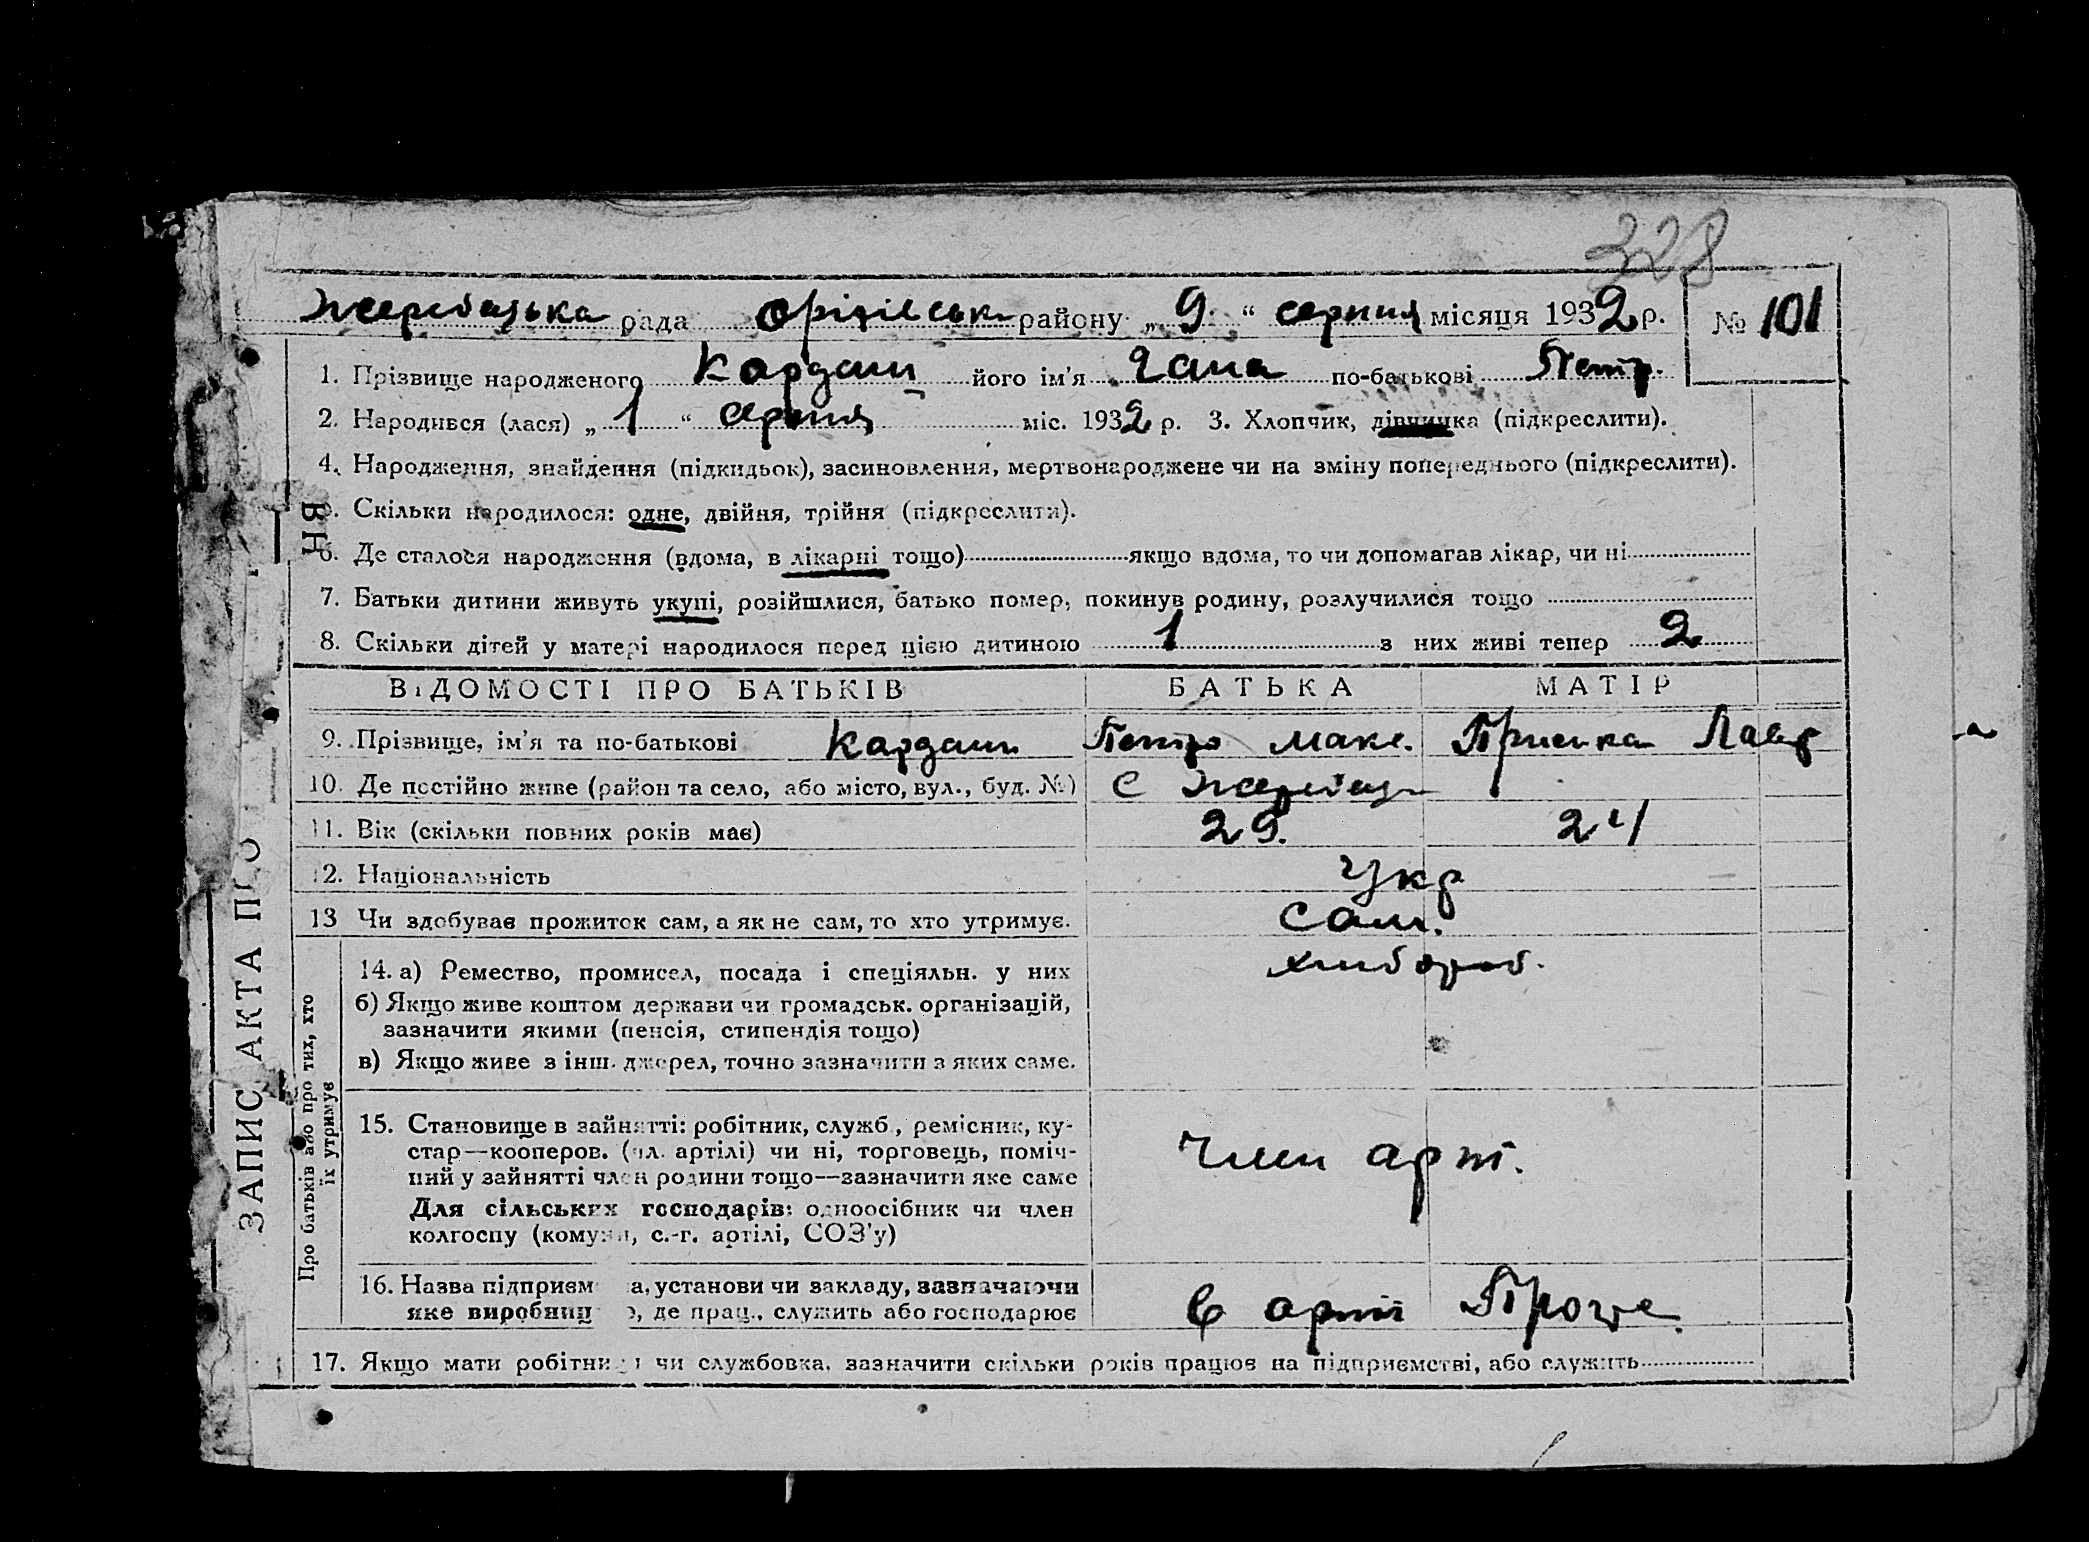 328
Жеребецька рада Оріхівськ району „ 9 “ серпня місяця 1932 р. № 101
1. Прізвище народженого Кардаш його ім’я по-батькові Петр.
2. Народився (лася) „ 1 “ серпня міс. 1932 р. 3. Хлопчик, дівчинка (підкреслити).
4. Народження, знайдення (підкидьок), засиновлення, мертвонароджене чи на зміну попереднього (підкреслити).
5. Скільки народилося: одне, двійня, трійня (підкреслити).
6. Де сталося народження (вдома, в лікарні тощо) якщо вдома, то чи допомагав лікар, чи ні
7. Батьки дитини живуть укупі, розійшлися, батько помер, покинув родину, розлучилися тощо
8. Скільки дітей у матері народилося перед цією дитиною 1 з них живі тепер 2
ВІДОМОСТІ ПРО БАТЬКІВ БАТЬКА МАТІР
9. Прізвище, ім’я та по-батькові Кардаш Петро Макс. Приська Лавр
10. Де постійно живе (район та село, або місто, вул., буд. №) С Жеребець
11. Вік (скільки повних років має) 29. 24
12. Національність Укр
13 Чи здобуває прожиток сам, а як не сам, то хто утримує. Сам.
14. а) Ремество, промисел, посада і спеціяльн. у них хлибороб.
б) Якщо живе коштом держави чи громадськ. організацій,
зазначити якими (пенсія, стипендія тощо)
в) Якщо живе з інш. джерел, точно зазначити з яких саме.
15. Становище в зайнятті: робітник, служб., ремісник, ку-
стар—кооперов. (чл. артілі) чи ні, торговець, поміч-
ний у зайнятті член родини тощо—зазначити яке саме
Член арт.
Для сільських господарів: одноосібник чи член
колгоспу (комуни, с.-г. артілі, СОЗ’у)
16. Назва підприєм а, установи чи закладу, зазначаючи
яке виробниц о, де прац., служить або господарює В арті
17. Якщо мати робітниця чи службовка, зазначити скільки років працює на підприємстві, або служить
ЗАПИС АКТА ПРО
Про батьків або про тих, хто
їх утримує